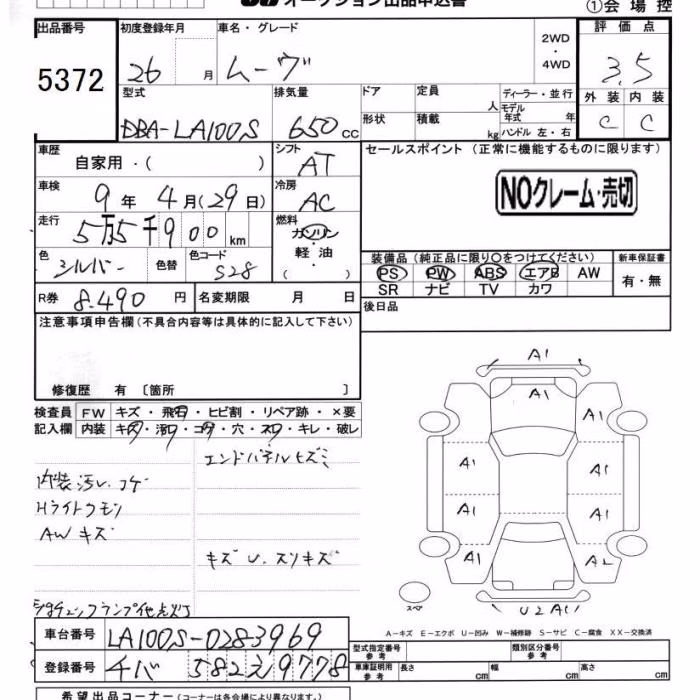 オークション出品申込書
①会場控
出品番号
5372
初度登録年月
26 月
車名・グレード
ムーヴ
2WD
4WD
評価点
3.5
外装 内装
C C
型式
DBA-LA100S
排気量
650 cc
ドア
形状
定員
人
積載
kg
ディーラー・並行
モデル年式 年
ハンドル 左・右
車歴
自家用・( )
シフト
AT
車検
9年 4月(29日)
冷房
AC
走行
5万5千900 km
燃料
ガソリン
軽油
( )
色
シルバー
色替
色コード
S28
R券
8.490 円
名変期限 月 日
セールスポイント (正常に機能するものに限ります)
NOクレーム・売切
装備品(純正品に限り○をつけてください)
PS PW ABS エアB AW
SR ナビ TV カワ
新車保証書
有・無
後日品
注意事項申告欄(不具合内容等は具体的に記入して下さい)
修復歴 有 〔箇所 〕
検査員記入欄
FW キズ・飛石・ヒビ割・リペア跡・×要
内装 キズ・汚れ・コゲ・穴・スレ・キレ・破レ
エンドパネルヒズミ
内装汚レ、コゲ
Hライトクモリ
AWキズ
キズ U、スリキズ
A1
A1
A1
A1
A1
A1
A1
A1
A1
A2
スペア
U2 A1
A-キズ E-エクボ U-凹み W-補修跡 S-サビ C-腐食 XX-交換済
車台番号
LA100S-0283969
登録番号
チバ 582 え 9778
型式指定番号
参考
類別区分番号
参考
車庫証明用
参考
長さ cm
幅 cm
高さ cm
希望出品コーナー(コーナーは各会場により異なります)